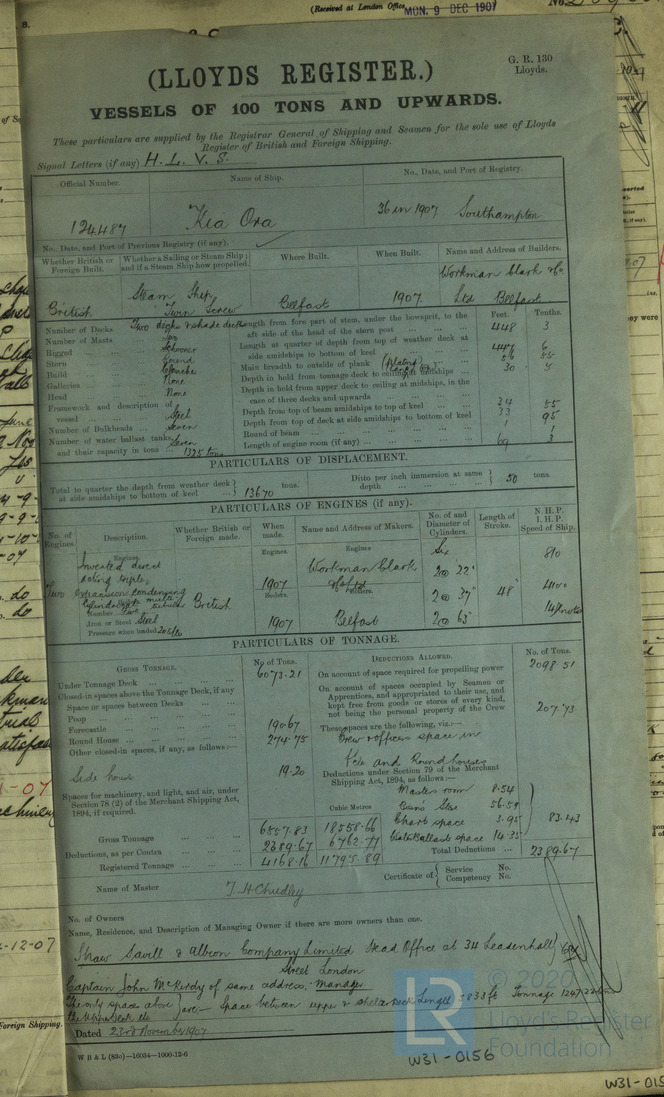 (Received at London Office
MON. 9 DEC 1907
No.
8.
G. R. 130
Lloyds.
(LLOYDS REGISTER.)
VESSELS OF 100 TONS AND UPWARDS.
These particulars are supplied by the Registrar General of Shipping and Seamen for the sole use of Lloyds
Register of British and Foreign Shipping.
Signal Letters (if any) H. L. V. S.
Official Number. Name of Ship. No., Date, and Port of Registry.
124487 Kia Ora 36 in 1907 Southampton
No. Date, and Port of Previous Registry (if any).
Whether British or Foreign Built. Whether a Sailing or Steam Ship; and if a Steam Ship how propelled. Where Built. When Built. Name and Address of Builders.
British Steam Ship Twin Screw Belfast 1907. Workman Clark & Co Ltd Belfast
Number of Decks Two decks & shade deck
Number of Masts Two
Rigged Schooner
Stern Round
Build Clencher
Galleries None
Head None
Framework and description of vessel Steel
Number of Bulkheads Seven
Number of water ballast tanks Seven
and their capacity in tons 1325 tons
Feet. Tenths.
Length from fore part of stem, under the bowsprit, to the aft side of the head of the stern post 448 3
Length at quarter of depth from top of weather deck at side amidships to bottom of keel 447 6
Main breadth to outside of plank (Plating) 56 55
Depth in hold from tonnage deck to ceiling amidships 30 5
Depth in hold from upper deck to ceiling at midships, in the case of three decks and upwards
Depth from top of beam amidships to top of keel 34 55
Depth from top of deck at side amidships to bottom of keel 33 95
Round of beam 1 1
Length of engine room (if any) 69 3
PARTICULARS OF DISPLACEMENT.
Total to quarter the depth from weather deck at side amidships to bottom of keel 13670 tons. Ditto per inch immersion at same depth 50 tons.
PARTICULARS OF ENGINES (if any).
No. of Engines. Description. Whether British or Foreign made. When made. Name and Address of Makers. No. of and Diameter of Cylinders. Length of Stroke. N.H.P. I.H.P. Speed of Ship.
Engines. Engines. Engines Six 810
Inverted direct
acting triple, 1907 Workman Clark & Co Ltd 2 @ 22" 4100
Two expansion condensing British Boilers. Boilers. 2 @ 37" 48" 14 knots
Number Two
Iron or Steel Steel 1907 Belfast 2 @ 63"
Pressure when loaded 205 lbs
PARTICULARS OF TONNAGE.
GROSS TONNAGE. No of Tons. DEDUCTIONS ALLOWED. No. of Tons.
Under Tonnage Deck 6073.21
Closed-in spaces above the Tonnage Deck, if any
Space or spaces between Decks
Poop
Forecastle 190.67
Round House 274.75
Other closed-in spaces, if any, as follows:—
Side house 19.20
Spaces for machinery, and light, and air, under Section 78 (2) of the Merchant Shipping Act, 1894, if required.
Cubic Metres
Gross Tonnage 6557.83 18558.66
Deductions, as per Contra 2389.67 6762.77
Registered Tonnage 4168.16 11795.89
On account of space required for propelling power 2098.51
On account of spaces occupied by Seamen or Apprentices, and appropriated to their use, and kept free from goods or stores of every kind, not being the personal property of the Crew 207.73
These spaces are the following, viz.:—
Crew & officers space in
F'cle and Roundhouses
Deductions under Section 79 of the Merchant Shipping Act, 1894, as follows:—
Masters room 8.54
Bosun's Store 56.59
Chart space 3.95
Water Ballast space 14.35
83.43
Total Deductions 2389.67
Name of Master T. H. Chudley
Certificate of Service No. Competency No.
No. of Owners
Name, Residence, and Description of Managing Owner if there are more owners than one.
Shaw Savill & Albion Company Limited Head Office at 34 Leadenhall
Street London
Captain John McKirdy of same address, Manager
The only spaces above the Upper deck etc are:— Space between upper & shelter deck Length 383.3 ft Tonnage
Dated 23rd November 1907
W B & L (83o)—10034—1000-12-6
© 2020
LR
Lloyd's Register
Foundation
W31-0156
Foreign Shipping.